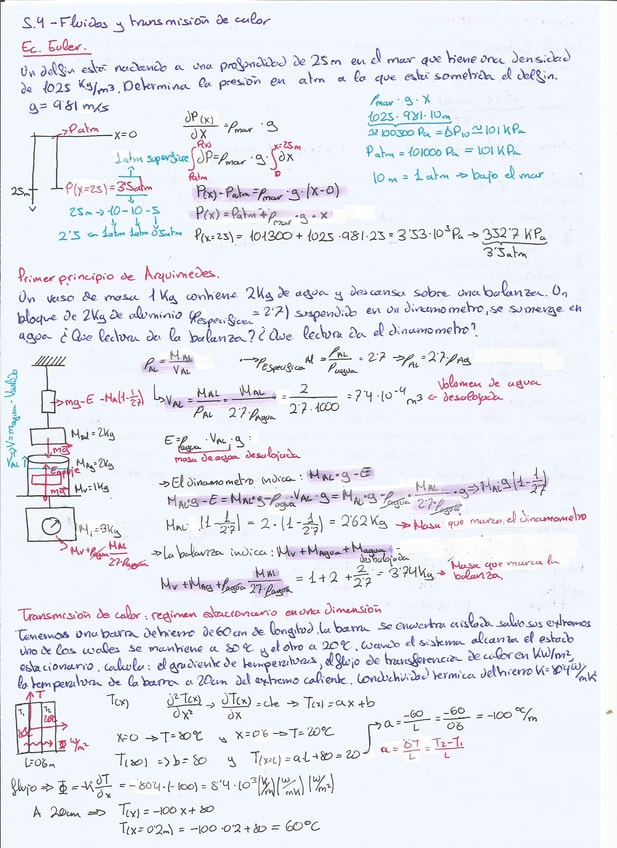 S.4 - Fluidos y transmisión de calor
Ec. Euler.
Un delfín está nadando a una profundidad de 25m en el mar que tiene una densidad
de 1025 Kg/m3. Determina la presión en atm a la que está sometida el delfín.
g = 9'81 m/s
Patm x=0
1 atm superficie
25m P(x=25) = 3'5atm
25m → 10-10-5
2'5 1atm 1atm 0'5atm
∂P(x)/∂x = ρmar · g
∫ ∂P = ρmar · g · ∫ ∂x
P(x) Patm x=25m 0
P(x) - Patm = ρmar · g · (x-0)
P(x) = Patm + ρmar · g · x
P(x=25) = 101300 + 1025 · 9'81 · 25 = 3'53 · 10⁵ Pa → 352'7 KPa
3'5 atm
ρmar · g · x
1025 · 9'81 · 10m
≅ 100500 Pa = ΔP10 ≅ 101 KPa
Patm = 101000 Pa = 101 KPa
10m = 1 atm → bajo el mar
Primer principio de Arquímedes.
Un vaso de masa 1 Kg contiene 2Kg de agua y descansa sobre una balanza. Un
bloque de 2Kg de aluminio (ρespecífica = 2'7) suspendido en un dinamometro, se sumerge en
agua ¿Que lectura da la balanza? ¿Que lectura da el dinamometro?
ρAL = MAL/VAL → ρEspecifica Al = ρAL/ρagua = 2'7 → ρAL = 2'7 · ρAg
mg-E = MAL(1-1/2'7)
VAL = MAL/ρAL = MAL/2'7·ρAgua = 2/2'7·1000 = 7'4 · 10⁻⁴ m3 ← Volumen de agua desalojada
Mal = 2Kg
MAg = 2Kg
Mv = 1Kg
Empuje
E = ρagua · VAL · g
masa de agua desalojada
→ El dinamometro indica: MAL · g - E
MAL·g - E = MAL·g - ρagua · VAL · g = MAL · g - ρagua · MAL/2'7·ρagua · g → MAL g (1-1/2'7)
MAL · (1-1/2'7) = 2 · (1-1/2'7) = 2'62 Kg → Masa que marca el dinamometro
M1 = 3Kg
Mv + ρagua MAL/2'7ρagua
→ La balanza indica: Mv + MAgua + Magua desalojada
Mv + MAg + ρagua MAL/2'7·ρagua = 1 + 2 + 2/2'7 = 3'74 Kg → Masa que marca la balanza.
Transmisión de calor: regimen estacionario en una dimensión
Tenemos una barra de hierro de 60 cm de longitud. la barra se encuentra aislada salvo sus extremos
uno de los cuales se mantiene a 80°C y el otro a 20°C. Cuando el sistema alcanza el estado
estacionario. calcula: el gradiente de temperaturas, el flujo de transferencia de calor en KW/m2,
la temperatura de la barra a 20cm del extremo caliente. Conductividad termica del hierro K = 80'4 W/mK
T
T1 T2
80°C 20°C
Φ W/m²
L=0'6m
T(x) ∂²T(x)/∂x² → ∂T(x)/∂x = cte → T(x) = ax + b
x=0 → T = 80°C y x = 0'6 → T = 20°C
T(80) => b = 80 y T(x=L) = aL + 80 = 20 → a = -60/L = -60/0'6 = -100 °C/m
a = ΔT/L = T2-T1/L
flujo => Φ = -K ∂T/∂x = -80'4 · (-100) = 8'4 · 10³ (K/m)(W/mK) (W/m²)
A 20cm => T(x) = -100x + 80
T(x=0'2m) = -100 · 0'2 + 80 = 60°C